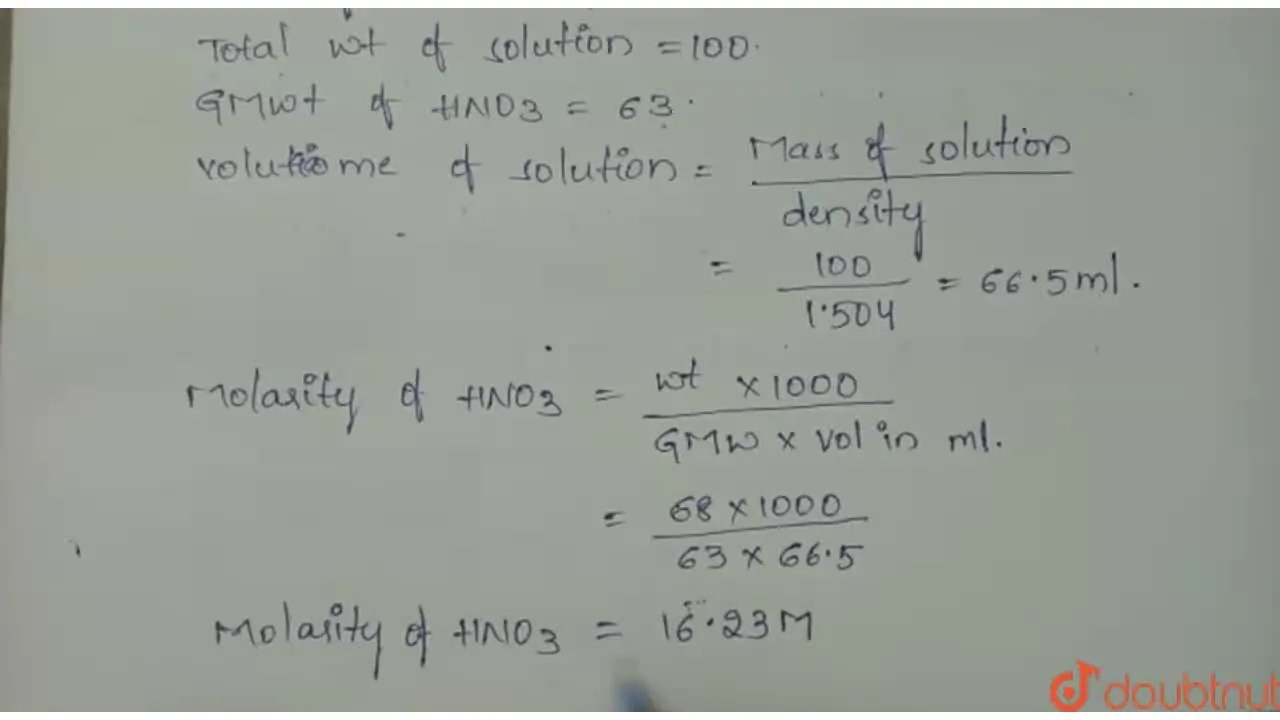 Total wt of solution = 100.
GMwt of HNO3 = 63.
volutiome of solution = Mass of solution
density
= 100
1.504
= 66.5ml.
Molarity of HNO3 = wt × 1000
GMW × vol in ml.
= 68 × 1000
63 × 66.5
Molarity of HNO3 = 16.23M
doubtnut